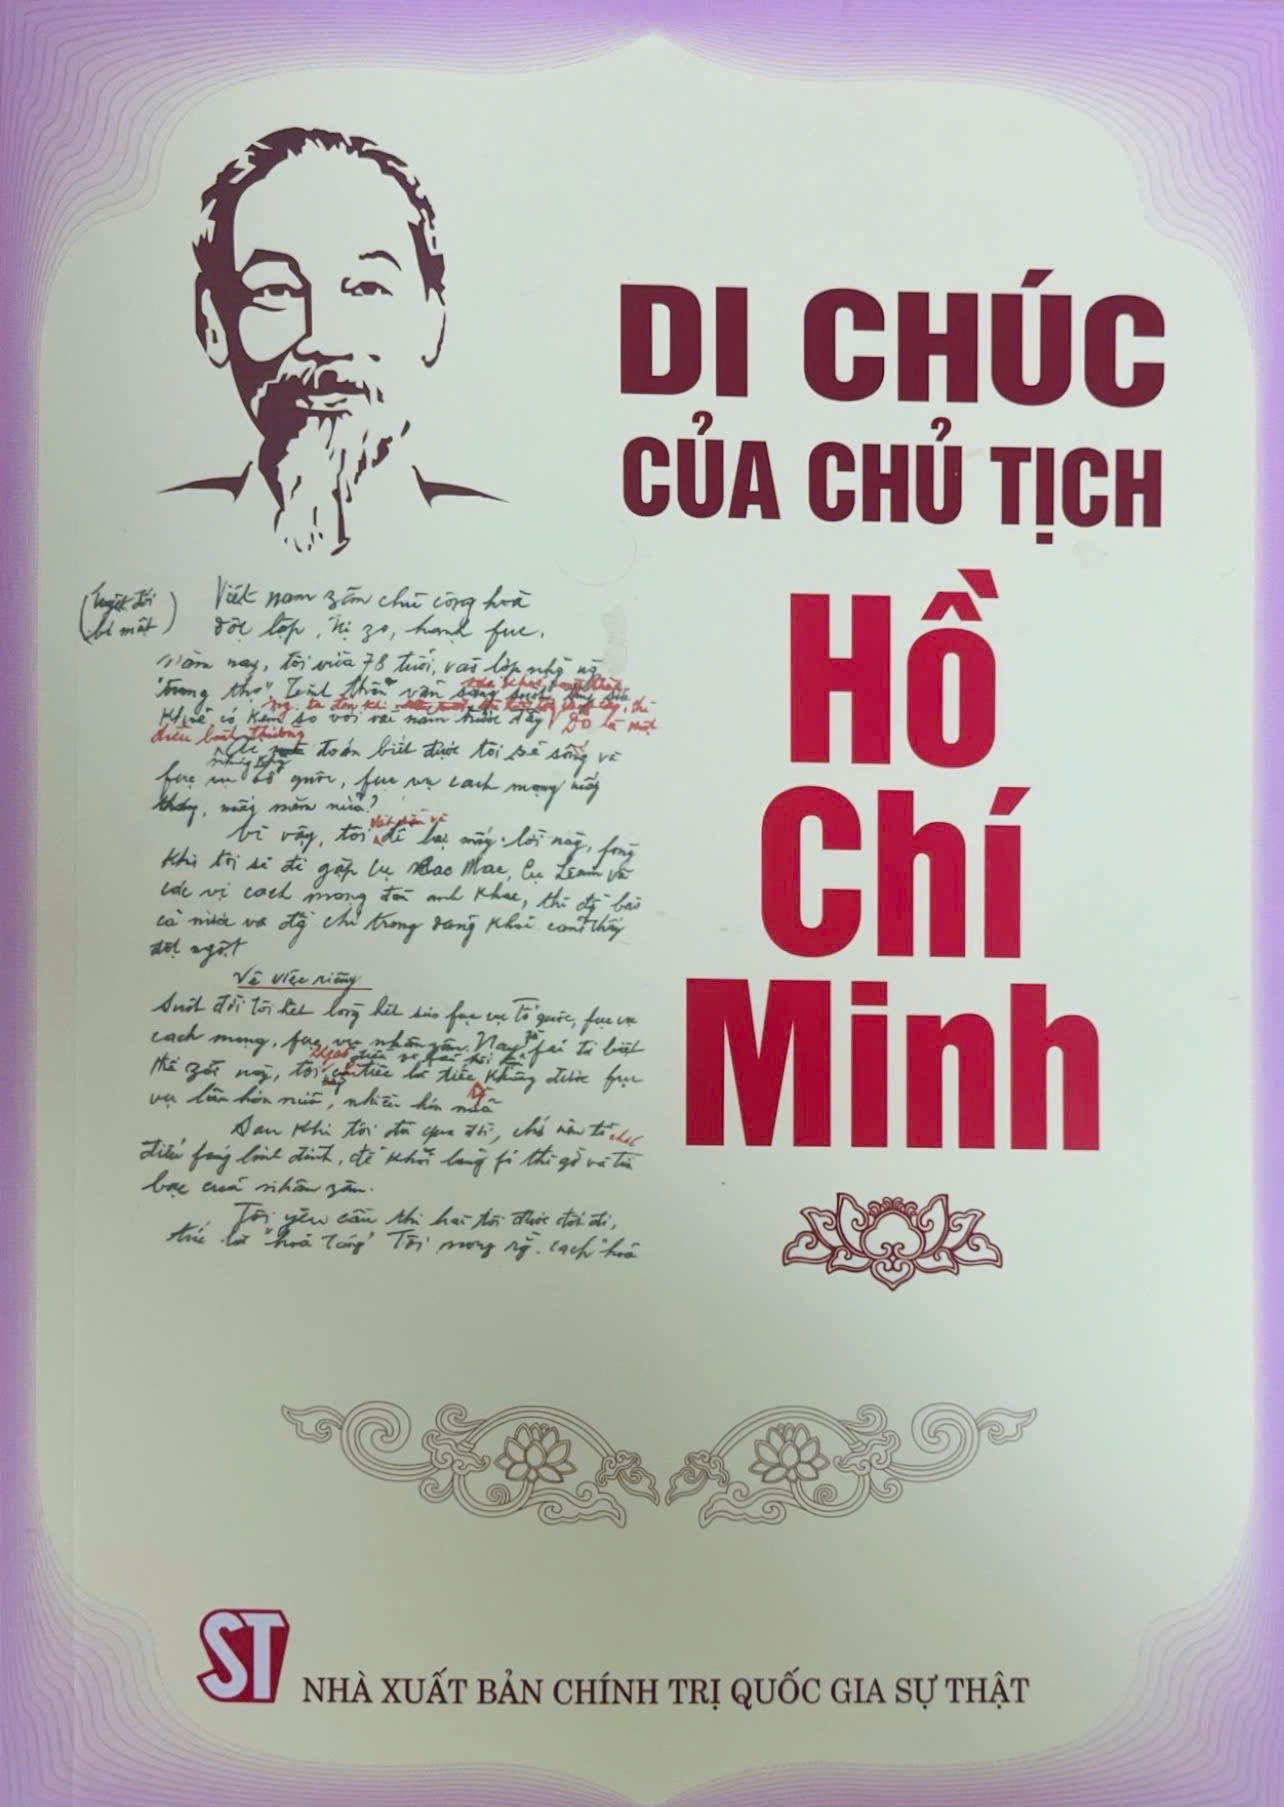 DI CHÚC
CỦA CHỦ TỊCH
Hồ
Chí
Minh
(Tuyệt đối
bí mật)
Việt nam zân chủ cộng hoà
độc lập, tự zo, hạnh fúc.
Năm nay, tôi vừa 78 tuổi, vào lớp những người
"trung thọ". Tinh thần vẫn sáng suốt
có kém so với vài năm trước đây Đó là một
điều bình thường
đoán biết được tôi sẽ sống và
fục vụ tổ quốc, fục vụ cách mạng mấy
tháng, mấy năm nữa?
Vì vậy, tôi để lại mấy lời này, fòng
khi tôi sẽ đi gặp cụ Các Mác, cụ Lênin và
các vị cách mạng đàn anh khác, thì đồng bào
cả nước và đồng chí trong đảng khỏi cảm thấy
đột ngột
Về việc riêng
Suốt đời tôi hết lòng hết sức fục vụ Tổ quốc, fục vụ
cách mạng, fục vụ nhân zân. Nay fải từ biệt
thế zới này, tôi tiếc là tiếc không được fục
vụ lâu hơn nữa, nhiều hơn nữa
Sau khi tôi đã qua đời, chớ nên tổ chức
điếu fúng linh đình, để khỏi lãng fí thì zờ và tiền
bạc của nhân zân.
Tôi yêu cầu thi hài tôi được đốt đi,
tức là "hoả táng" Tôi mong rằng cách "hoả
ST
NHÀ XUẤT BẢN CHÍNH TRỊ QUỐC GIA SỰ THẬT